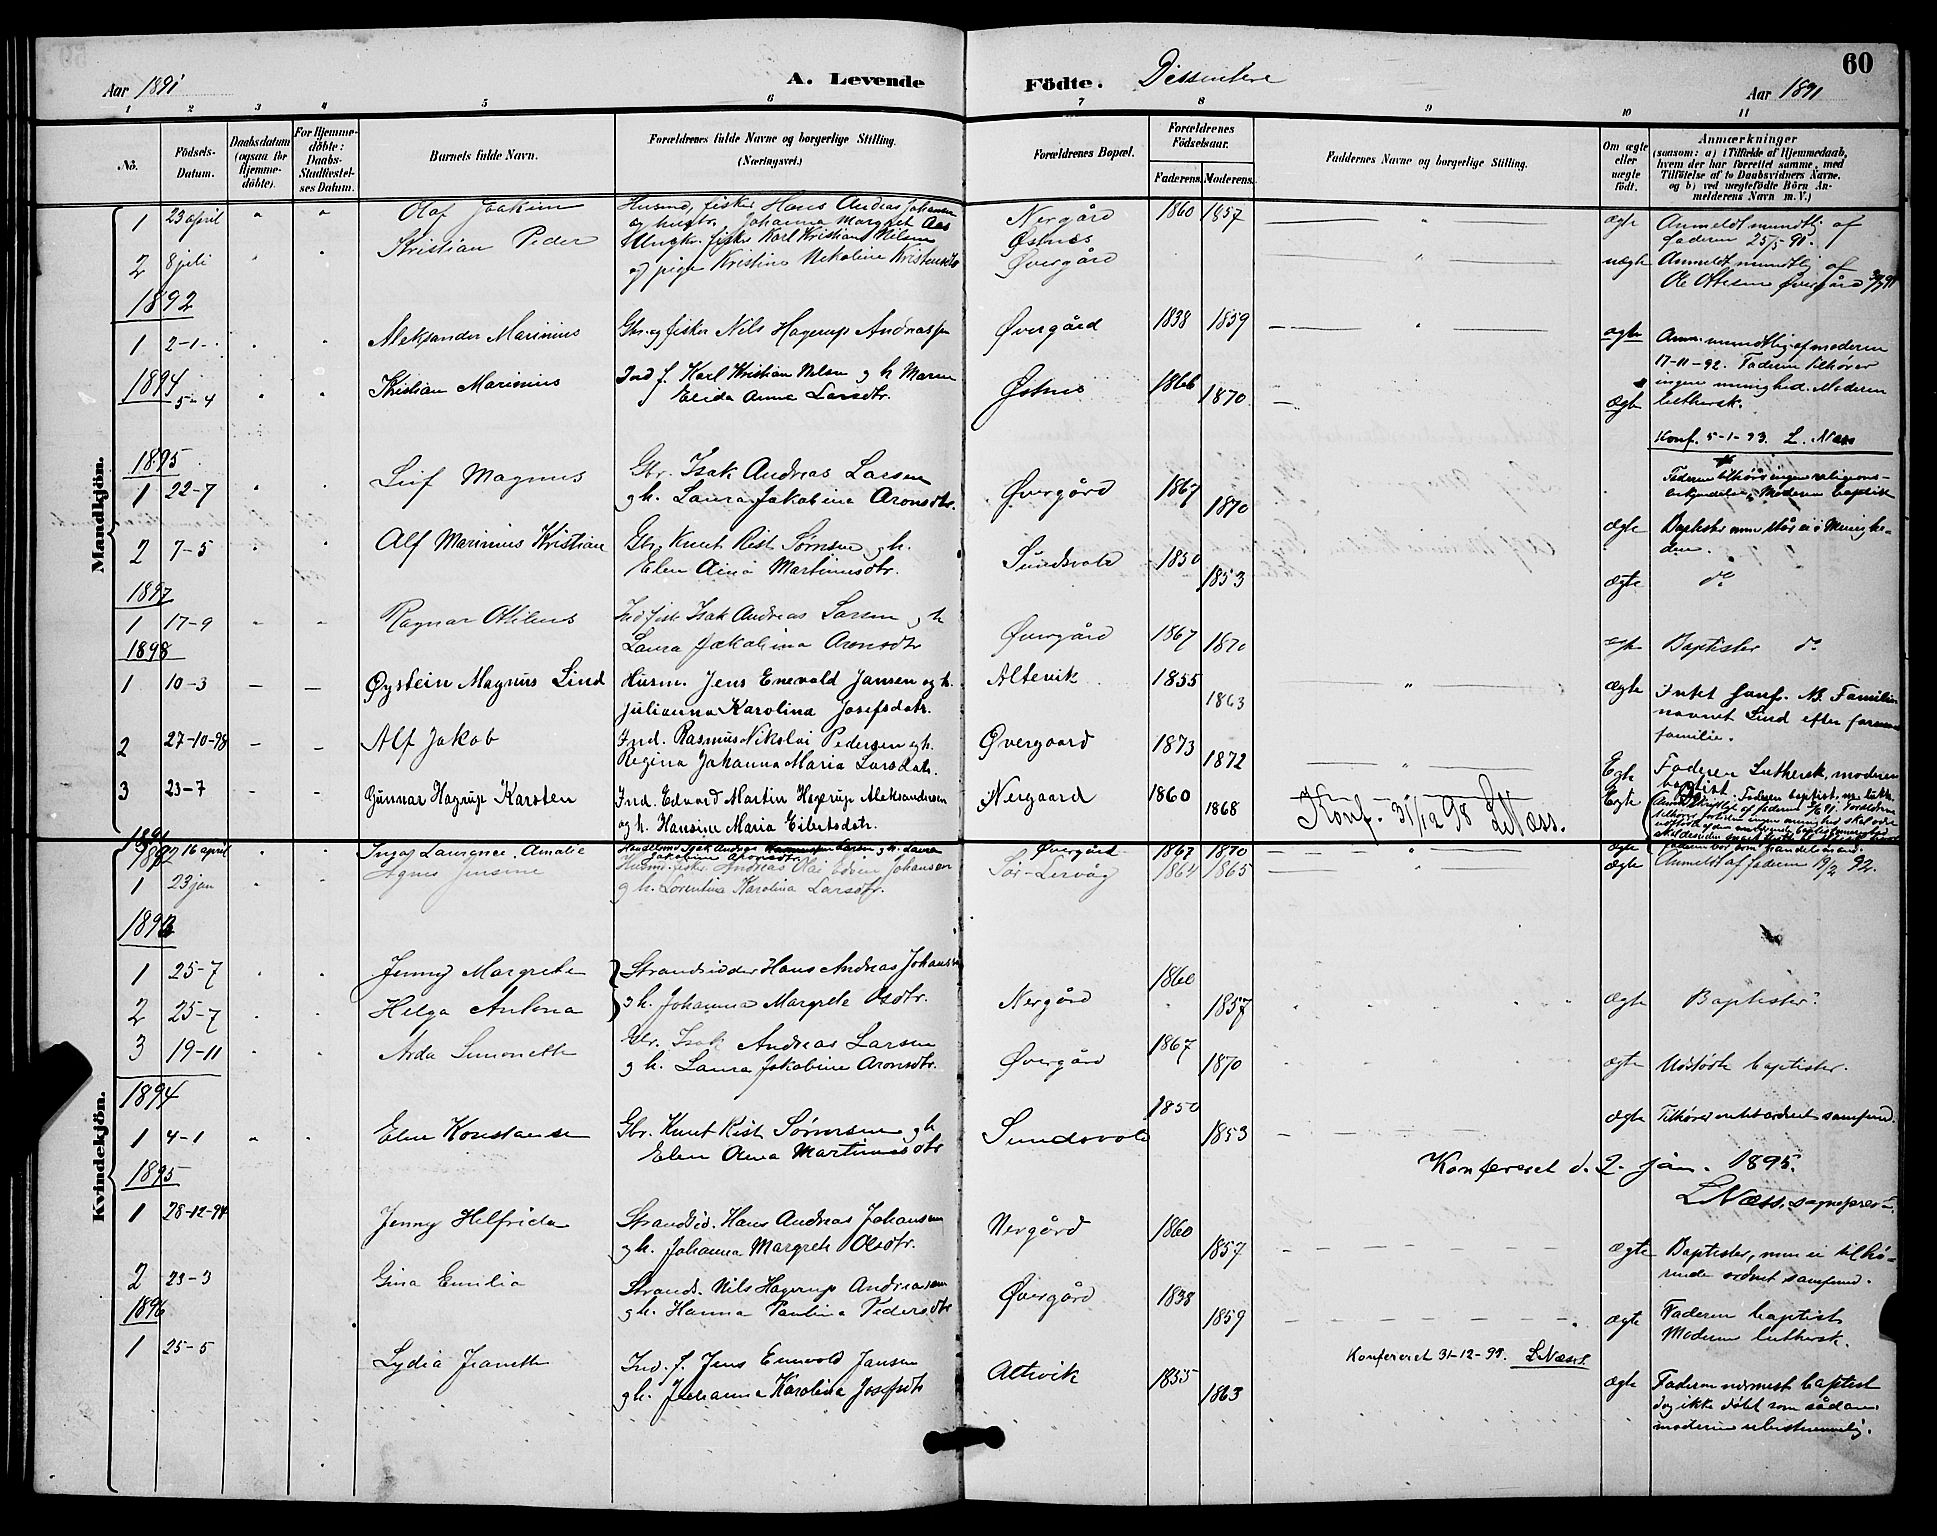 60
Aar 1891
A. Levende
Födte. Dissentere
Aar 1891
1 2 3 4 5 6 7 8 9 10 11
No.
Födsels-Datum.
Daabsdatum (ogsaa for Hjemmedöbte).
For Hjemmedöbte: Daabs-Stadfæstelses Datum.
Barnets fulde Navn.
Forældrenes fulde Navne og borgerlige Stilling. (Næringsvei.)
Forældrenes Bopæl.
Forældrenes Födselsaar.
Faderens. Moderens.
Faddernes Navne og borgerlige Stilling.
Om ægte eller uægte födt.
Anmærkninger
(saasom: a) i Tilfælde af Hjemmedaab, hvem der har forrettet samme, med Tilföielse af to Daabsvidners Navne, og b) ved uægtefödte Börn Anmelderens Navn m. V.)
Mandkjön.
1 23 april Olaf Joakim Husmd, fisker Hans Andreas Johansen Nergård 1860 1857 ægte Anmeldt mundtlig af
og hustr. Johanna Margret Aas faderen 25/5 91.
2 8 juli Kristian Peder Ungkr. fisker Karl Kristian Nilsen Østnes uægte Anmeldt mundtlig af
og pige Kristine Nikoline Kristensdtr Øvergård Ole Ottesen Øvergård
1892
1 2-1 Aleksander Marinius Gbr. og fisker Nils Hagerup Andreassen Øvergård 1838 1859 ægte Anm. mundtlig af moderen
17-11-92. Faderen tilhører
ingen menighed. Moderen
luthersk.
1894
5-4 Kristian Marinius Ind f. Karl Kristian Nilsen og h Maren Østnes 1866 1870 Ægte
Elida Anna Larsdtr.
Konf. 5-1-93. L. Næss
1895
1 22-7 Leif Magnus Gbr. Isak Andreas Larsen Øvergård 1867 1870 ægte Faderen tilhører ingen religions-
og h. Laura Jakobine Aronsdtr. bekjendelse, Moderen baptist
2 7-5 Alf Marinius Kristian Gbr. Knut Rist Sørensen og h. Sundsvold 1850 1853 ægte Baptister men står ei i Menighe-
Elen Aina Martinusdtr. den.
1897
do
1 17-9 Ragnar Otilius Ind fisk Isak Andreas Larsen og h Øvergård 1867 1870 ægte Baptister do
Laura Jakobina Aronsdtr
1898
1 10-3 Øystein Magnus Lind Husm. Jens Enevald Jansen og h. Altevik 1855 1863 ægte Intet samf. NB. Familie
Julianna Karolina Josefsdatr. navnet Lind efter farens
familie.
2 27-10-98 Alf Jakob Ind. Rasmus Nikolai Pedersen og h. Øvergaard 1873 1872 Egte Faderen Luthersk, moderen
Regina Johanna Maria Larsdatr. baptist.
3 23-7 Gunnar Hagrup Karsten Ind. Edvard Martin Hagerup Aleksandersen Nergaard 1860 1868 Egte Faderen baptist,
og h. Hansine Maria Eibertsdatr.
Konf. 31/12 98 LNæss.
Kvindekjön.
1891
16 april Inga Laurence Amalie Handelsmd Isak Andreas Larsen og h. Laura Øvergård 1867 1870 ægte
Jakobine Aronsdtr
1892
1 23 jan Agnes Jensine Husmd. fisker Andreas Olai Edvin Johansen Sör-Lervåg 1864 1865 ægte Anmeldt af faderen 19/2 92.
og h. Lorentina Karolina Larsdtr.
1893
1 25-7 Jenny Margrete Strandsidder Hans Andreas Johansen 1860
2 25-7 Helga Antona og h. Johanna Margrete Olsdtr. Nergård 1857 ægte Baptister.
3 19-11 Arda Simonette Gbr. Isak Andreas Larsen Øvergård 1867 1870 ægte Udstødte baptister.
og h. Laura Jakobine Aronsdtr.
1894
1 4-1 Elen Konstanse Gbr. Knut Rist Sørensen og h Sundsvold 1850 1853 ægte Tilhører intet ordnet samfund.
Elen Aina Martinusdtr
Konfereret d. 2. jan. 1895.
LNæss, sognepræst.
1895
1 28-12-94 Jenny Helfrida Strandsid. Hans Andreas Johansen Nergård 1860 1857 ægte Baptister, men ei tilhø-
og h. Johanna Margrete Olsdtr. rende ordnet samfund.
2 23-3 Gina Emilia Strands. Nils Hagerup Andreassen Øvergård 1838 1859 ægte Faderen baptist
og h. Hanna Paulina Pedersdtr Moderen luthersk.
Konfereret 31-12-95. LNæss.
1896
1 25-5 Lydia Jeanette Ind. f. Jens Enevold Jansen Altevik 1855 1863 ægte Faderen nærmest baptist
og h. Julianna Karolina Josefsdtr dog ikke døbt som sådan.
moderen ubestemmelig.